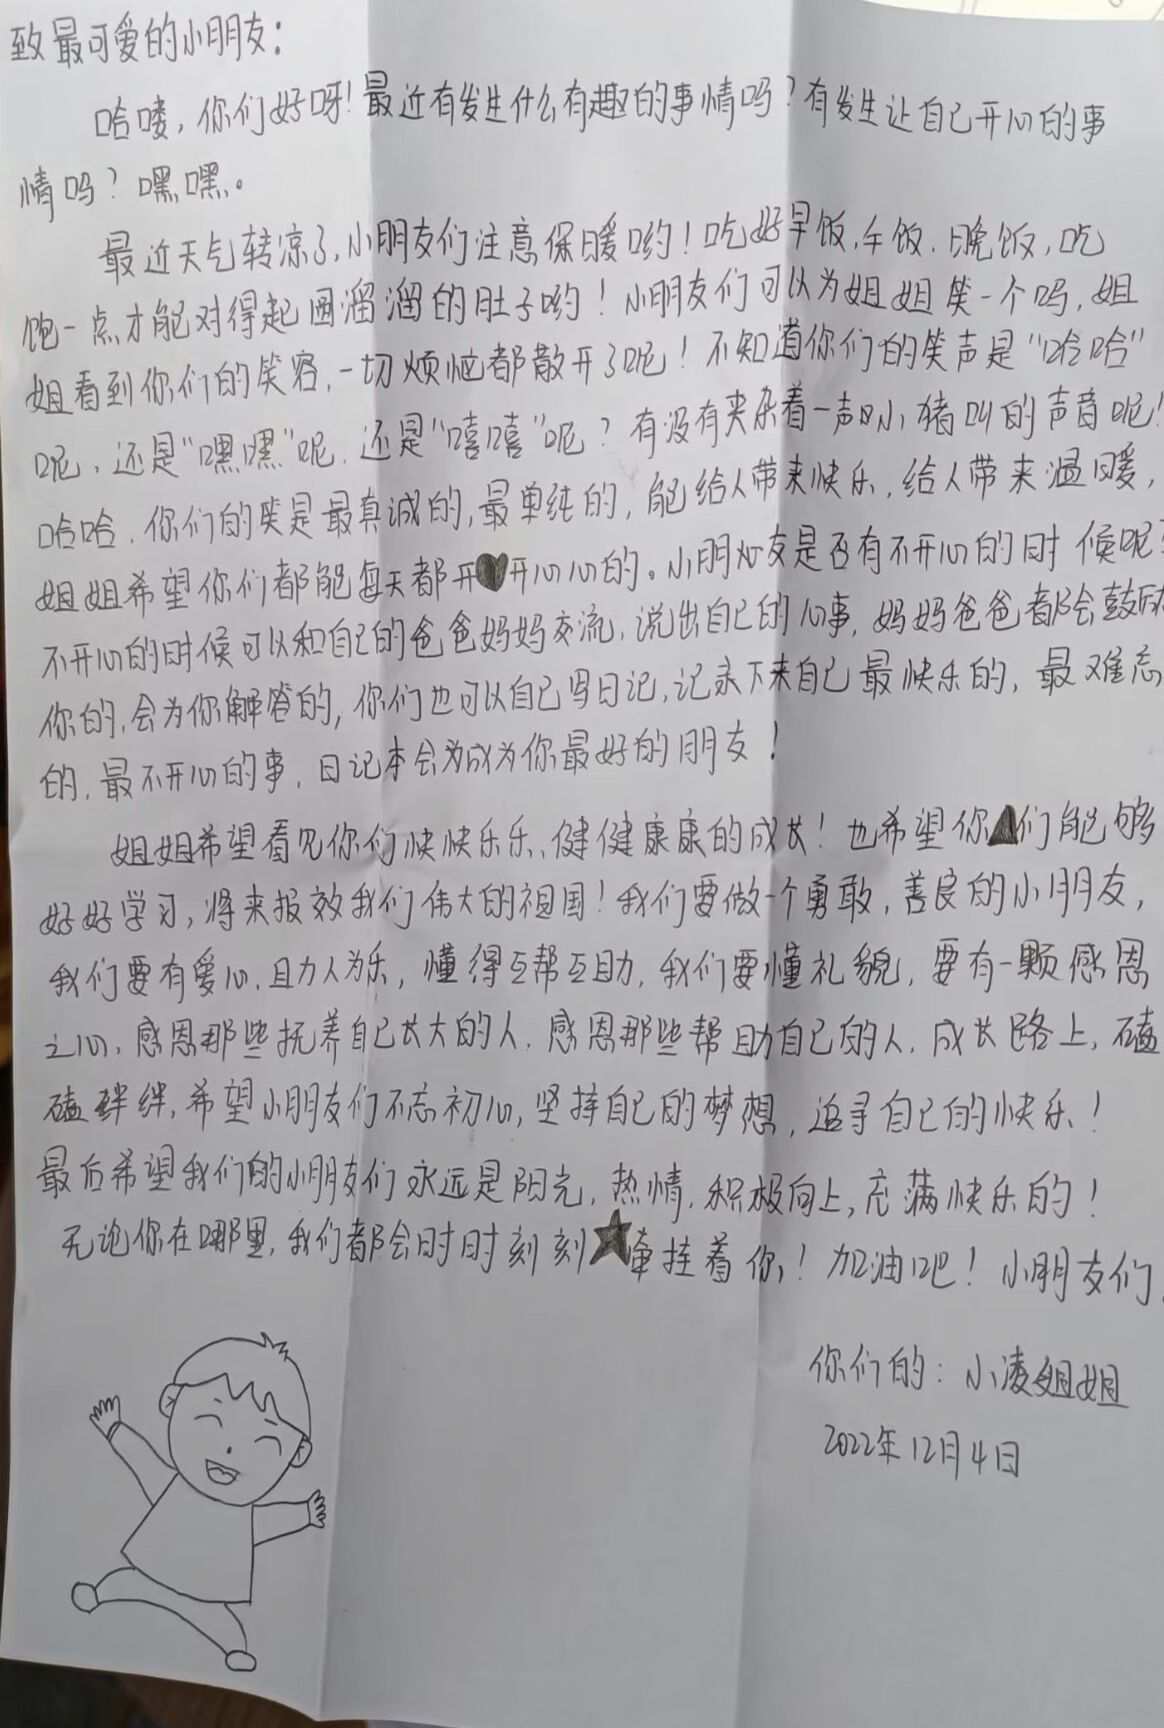 致最可爱的小朋友：
哈喽，你们好呀！最近有发生什么有趣的事情吗？有发生让自己开心的事
情吗？嘿嘿。
最近天气转凉了，小朋友们注意保暖哟！吃好早饭，午饭，晚饭，吃
饱一点才能对得起圆溜溜的肚子哟！小朋友们可以为姐姐笑一个吗，姐
姐看到你们的笑容，一切烦恼都散开了呢！不知道你们的笑声是“哈哈”
呢，还是“嘿嘿”呢，还是“嘻嘻”呢？有没有夹杂着一声小猪叫的声音呢！
哈哈，你们的笑是最真诚的，最单纯的，能给人带来快乐，给人带来温暖，
姐姐希望你们都能每天都开开心心的。小朋友是否有不开心的时候呢？
不开心的时候可以和自己的爸爸妈妈交流，说出自己的心事，妈妈爸爸都会鼓励
你的，会为你解答的，你们也可以自己写日记，记录下来自己最快乐的，最难忘
的，最不开心的事，日记本会为成为你最好的朋友！
姐姐希望看见你们快快乐乐、健健康康的成长！也希望你们能够
好好学习，将来报效我们伟大的祖国！我们要做一个勇敢，善良的小朋友，
我们要有爱心，助人为乐，懂得互帮互助，我们要懂礼貌，要有一颗感恩
之心，感恩那些抚养自己长大的人，感恩那些帮助自己的人，成长路上，磕
磕绊绊，希望小朋友们不忘初心，坚持自己的梦想，追寻自己的快乐！
最后希望我们的小朋友们永远是阳光，热情，积极向上，充满快乐的！
无论你在哪里，我们都会时时刻刻牵挂着你！加油吧！小朋友们
你们的：小凌姐姐
2022年12月4日